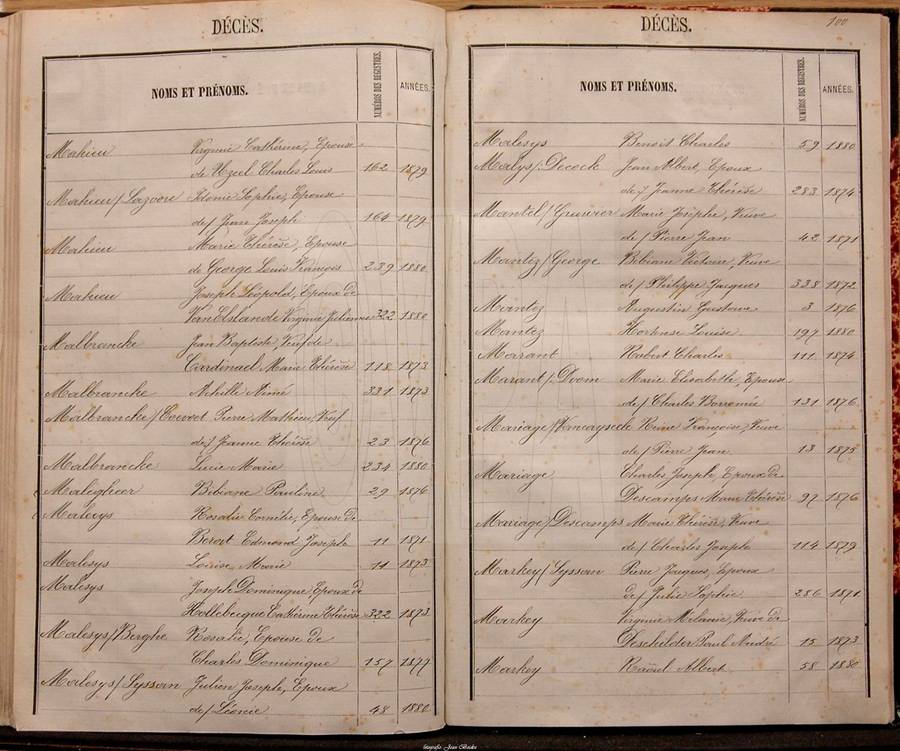 DÉCÈS.
NOMS ET PRÉNOMS. NUMÉROS DES REGISTRES ANNÉES.
Mahieu Virginie Cathérine, Epouse
de Uziel Charles Louis 162 1879
Mahieu/Lazoore Idonie Sophie, Epouse
de/ Jean Joseph 164 1879
Mahieu Marie Thérèse, Epouse
de George Louis François 239 1880
Mahieu Joseph Léopold, Epoux de
VanElslande Virginie Julienne 322 1880
Malbrancke Jean Baptiste, Veuf de
Cardinael Marie Thérèse 118 1873
Malbrancke Achille Aimé 331 1873
Malbrancke/ Pierre Mathieu, Veuf
de/ Jeanne Thérèse 23 1876
Malbrancke Lucie Marie 234 1880
Malegheer Bibiane Pauline 29 1876
Malesys Rosalie Cornélie, Epouse de
Benoit Edmond Joseph 11 1871
Malesys Louise Marie 11 1873
Malesys Joseph Dominique, Epoux de
Hollebecque Cathérine Thérèse 322 1873
Malesys/Berghe Rosalie, Epouse de
Charles Dominique 157 1877
Malesys/Lyssan Julien Joseph, Epoux
de/ Léonie 48 1880
DÉCÈS. 100
NOMS ET PRÉNOMS. NUMÉROS DES REGISTRES ANNÉES.
Malesys Benoit Charles 59 1880
Malys/: Decock Jean Albert, Epoux
de/ Jeanne Thérèse 283 1874
Mantel/Gruwier Marie Josèphe, Veuve
de/ Pierre Jean 42 1871
Mantez/George Bibiane Victoire, Veuve
de/ Philippe Jacques 338 1872
Mantez Augustin Gustave 3 1876
Mantez Hortense Louise 197 1880
Marant Robert Charles 111 1874
Marant/: Doom Marie Elisabeth, Epouse
de/ Charles Borromée 131 1876
Mariage/Vancayseele Reine Françoise, Veuve
de/ Pierre Jean 13 1875
Mariage Charles Joseph, Epoux de
Descamps Marie Thérèse 97 1876
Mariage/Descamps Marie Thérèse, Veuve
de/ Charles Joseph 114 1879
Markey/Lyssan Pierre Jacques, Epoux
de/ Julie Sophie 286 1871
Markey Virginie Mélanie, Veuve de
Deschilder Paul André 15 1873
Markey Raoul Albert 58 1880
fotografie: Jean Beeke